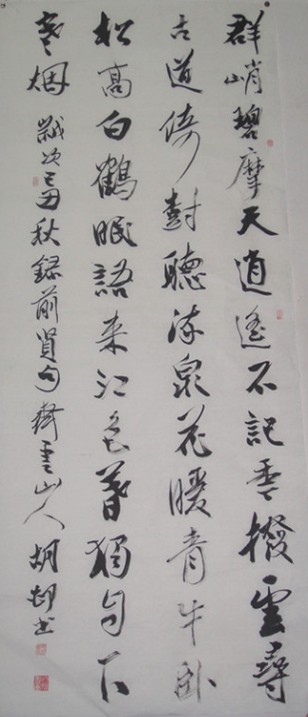 群峭碧摩天逍遙不記年撥雲尋
古道倚樹聽流泉花暖青牛卧
松高白鶴眠語来江色暮獨自下
寒烟 歲次己丑秋錄前賢句雲山人胡邨书